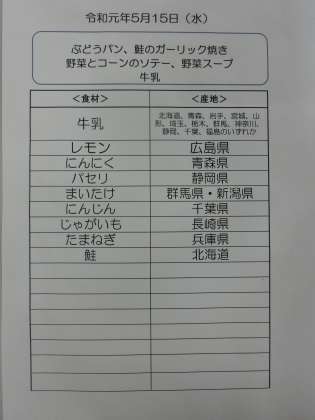 令和元年5月15日（水）
ぶどうパン、鮭のガーリック焼き
野菜とコーンのソテー、野菜スープ
牛乳
＜食材＞ ＜産地＞
牛乳 北海道、青森、岩手、宮城、山
形、埼玉、栃木、群馬、神奈川、
静岡、千葉、福島のいずれか
レモン 広島県
にんにく 青森県
パセリ 静岡県
まいたけ 群馬県・新潟県
にんじん 千葉県
じゃがいも 長崎県
たまねぎ 兵庫県
鮭 北海道